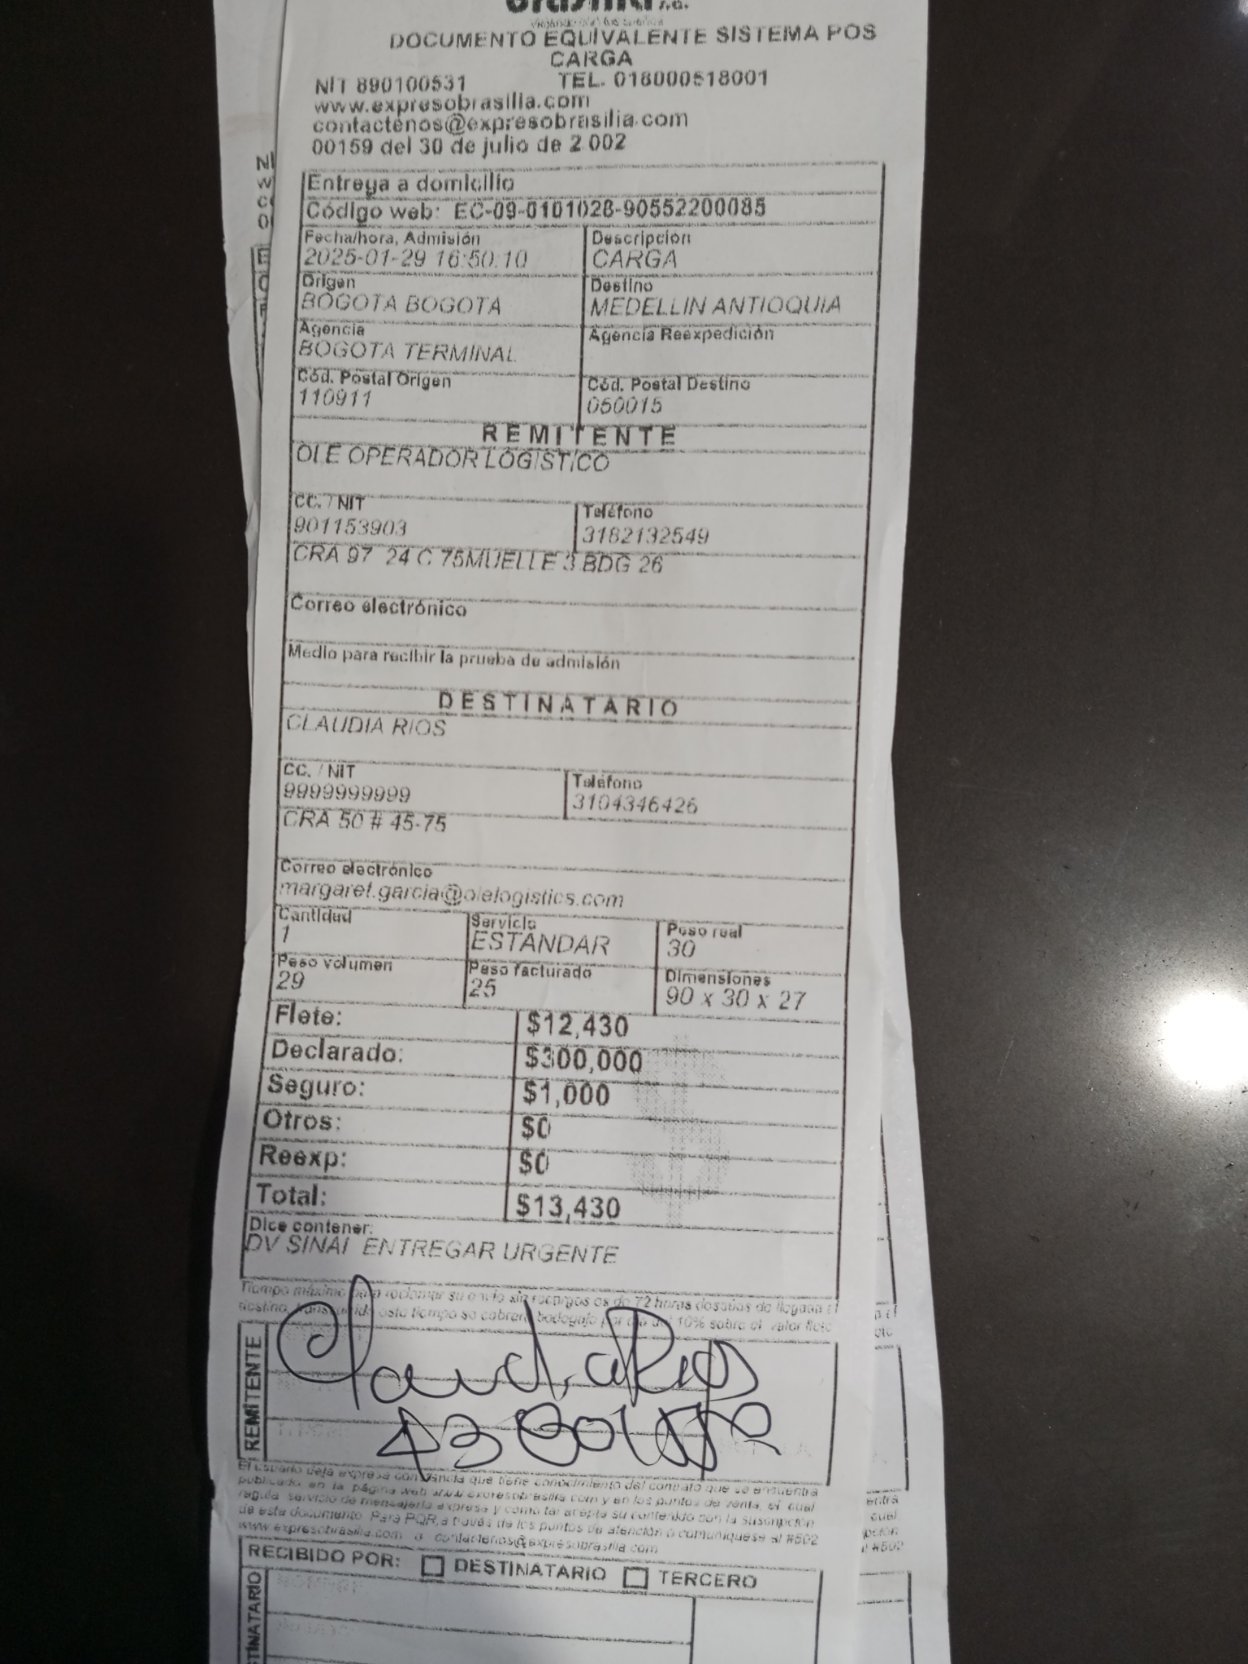 DOCUMENTO EQUIVALENTE SISTEMA POS
CARGA
NIT 890100531 TEL. 018000518001
www.expresobrasilia.com
contactenos@expresobrasilia.com
00159 del 30 de julio de 2 002
Entrega a domicilio
Código web: EC-09-0101028-90552200085
Fecha/hora, Admisión Descripción
2025-01-29 16:50:10 CARGA
Origen Destino
BOGOTA BOGOTA MEDELLIN ANTIOQUIA
Agencia Agencia Reexpedición
BOGOTA TERMINAL
Cód. Postal Origen Cód. Postal Destino
110911 050015
REMITENTE
OLE OPERADOR LOGISTICO
CC. / NIT Teléfono
901153903 3182132549
CRA 97 24 C 75MUELLE 3 BDG 26
Correo electrónico
Medio para recibir la prueba de admisión
DESTINATARIO
CLAUDIA RIOS
CC. / NIT Teléfono
9999999999 3104346426
CRA 50 # 45-75
Correo electrónico
margaret.garcia@olelogistics.com
Cantidad Servicio Peso real
1 ESTANDAR 30
Peso volumen Peso facturado Dimensiones
29 25 90 x 30 x 27
Flete: $12,430
Declarado: $300,000
Seguro: $1,000
Otros: $0
Reexp: $0
Total: $13,430
Dice contener:
DV SINAI ENTREGAR URGENTE
Tiempo máximo para reclamar su envío sin recargos es de 72 horas después de llegada al
destino, transcurrido este tiempo se cobrará bodegaje por día del 10% sobre el valor flete
REMITENTE
Claudia Rios
El usuario deja expresa constancia que tiene conocimiento del contrato que se encuentra
publicado en la página web www.expresobrasilia.com y en los puntos de venta, el cual
regula servicio de mensajería expresa y como tal acepta su contenido con la suscripción
de este documento. Para PQR, a través de los puntos de atención o comuníquese al #502
www.expresobrasilia.com o contactenos@expresobrasilia.com
RECIBIDO POR: DESTINATARIO TERCERO